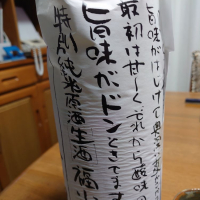 旨味がはじけて
最初は甘〜く、それから酸味の
旨味がドンときてます
特別純米原酒生酒福